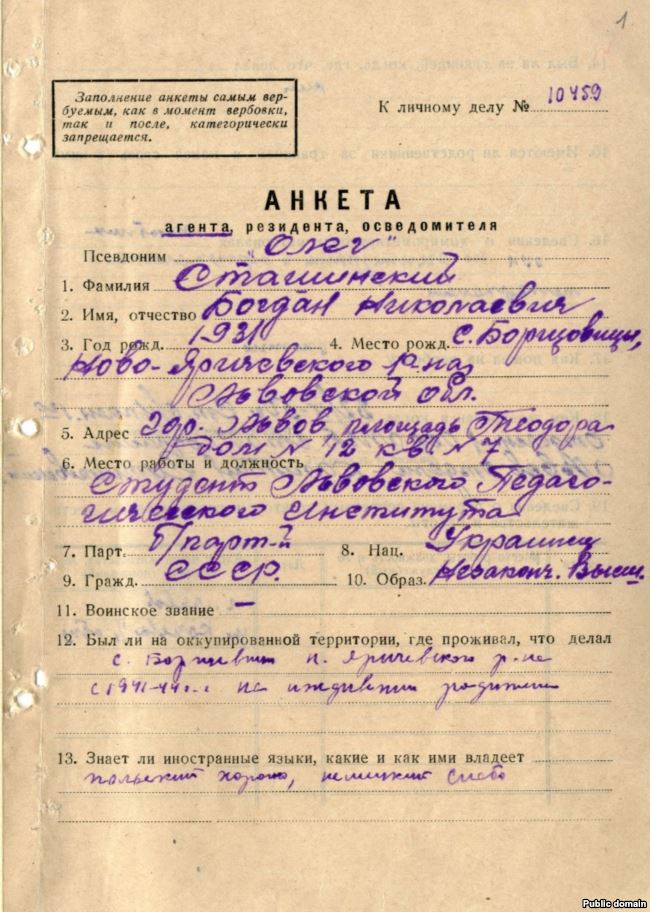 1.
Заполнение анкеты самым вер-
буемым, как в момент вербовки,
так и после, категорически
запрещается.
К личному делу № 10459
АНКЕТА
агента, резидента, осведомителя
Псевдоним „Олег"
1. Фамилия Сташинский
2. Имя, отчество Богдан Николаевич
3. Год рожд. 1931 4. Место рожд. с. Борщовицы,
Ново-Яричевского р-на
Львовской обл.
5. Адрес гор. Львов, площадь Теодора
дом № 12 кв № 7
6. Место работы и должность
Студент Львовского Педаго-
гического Института
7. Парт. б/парт-й 8. Нац. Украинец
9. Гражд. СССР. 10. Образ. Незаконч. Высш.
11. Воинское звание —
12. Был ли на оккупированной территории, где проживал, что делал
с. Борщевицы н. Яричевского р-на
с 1941-44 г.г. на иждивении родителей
13. Знает ли иностранные языки, какие и как ими владеет
польский хорошо, немецкий слабо
Public domain